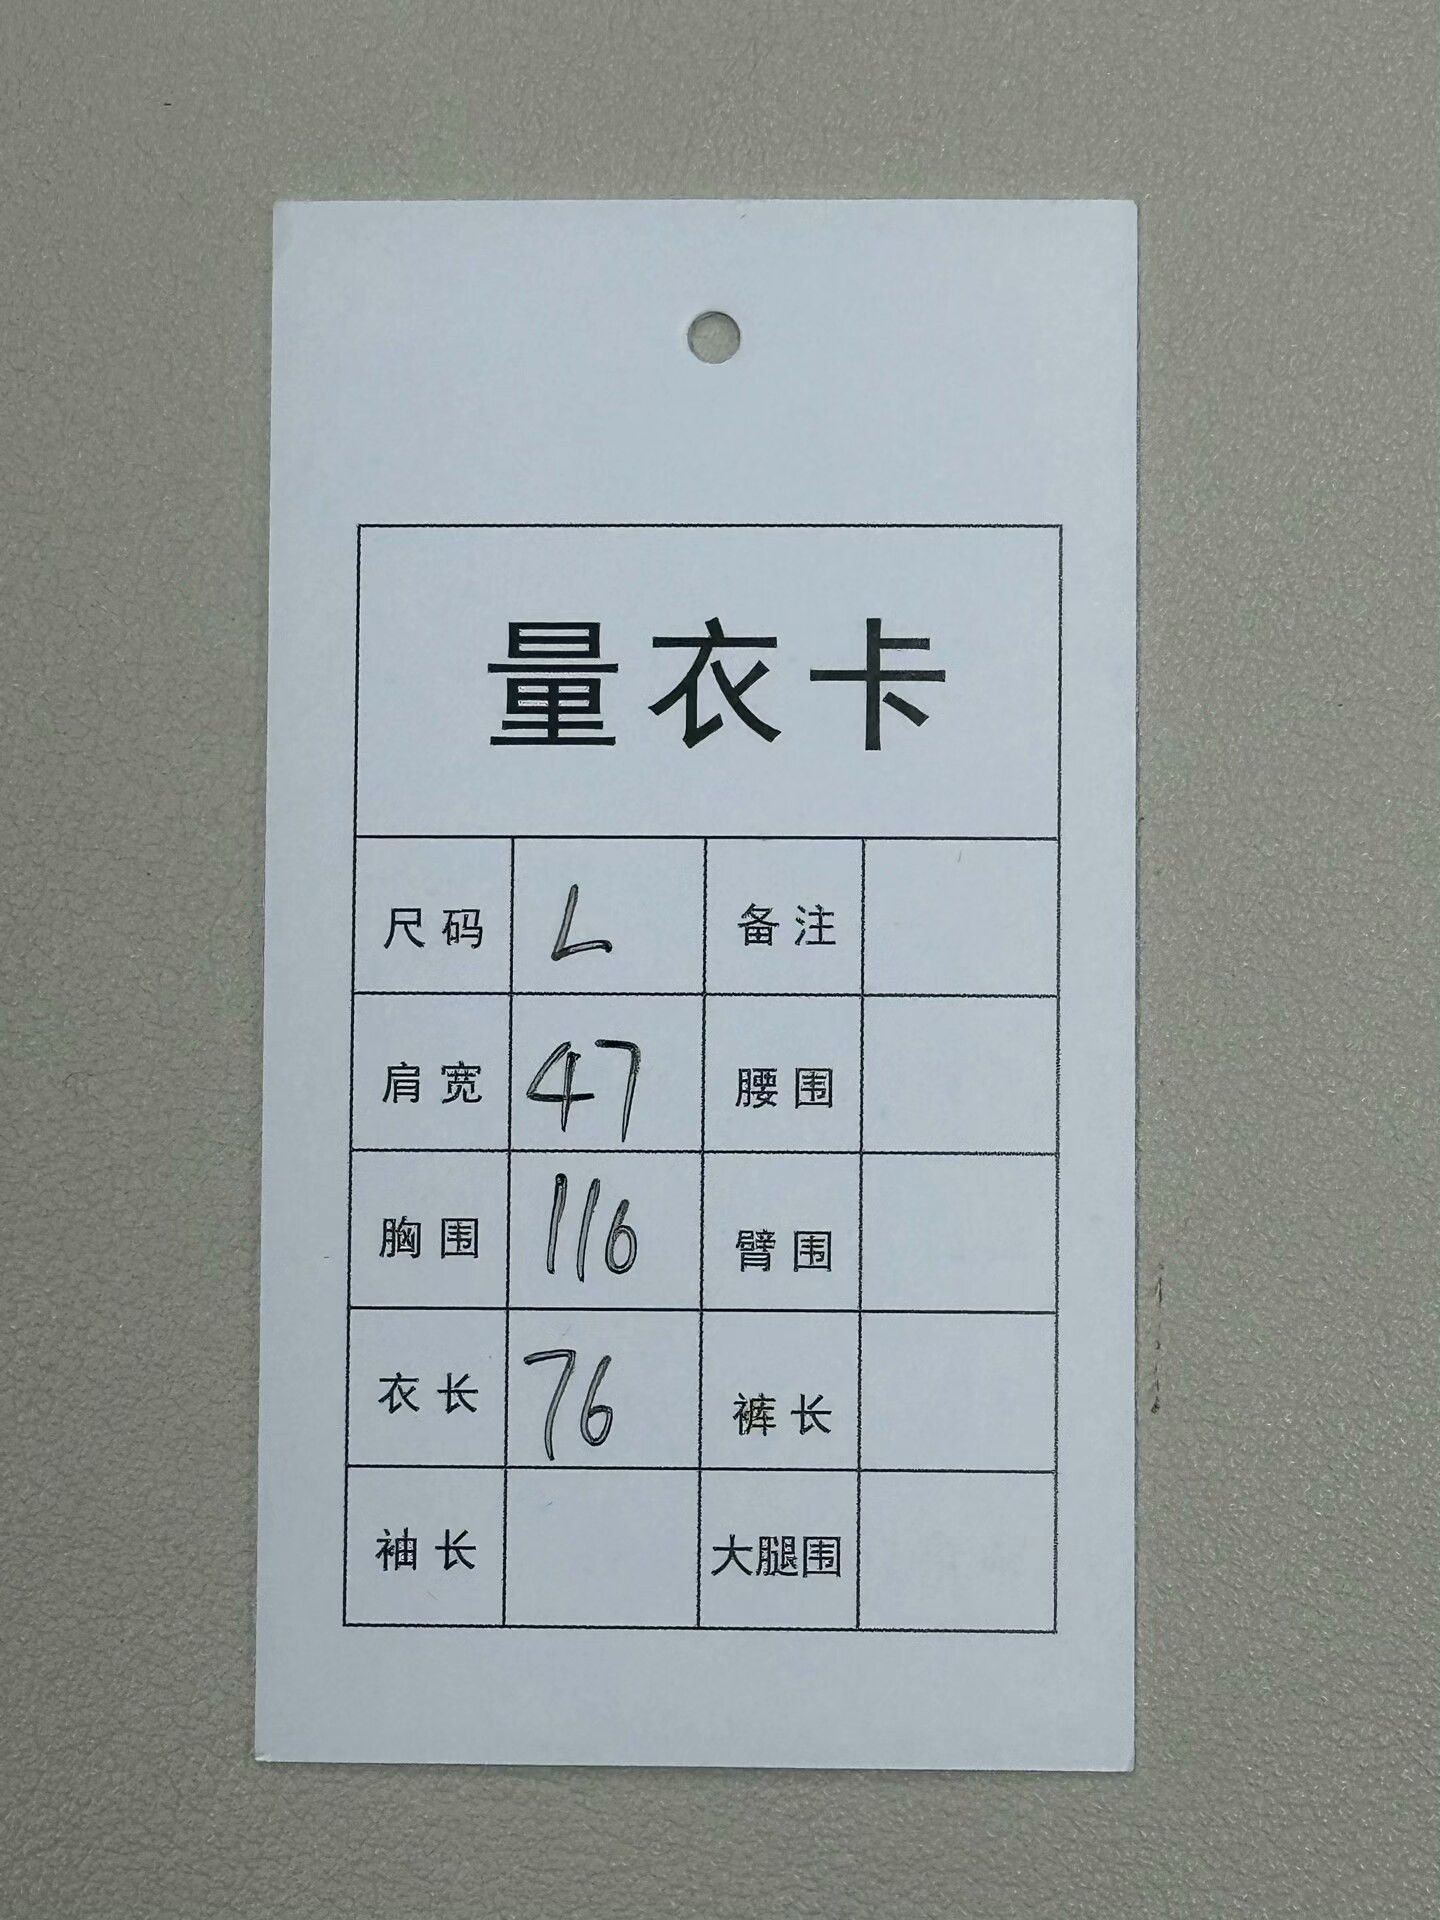 量衣卡
尺码 L 备注
肩宽 47 腰围
胸围 116 臂围
衣长 76 裤长
袖长 大腿围